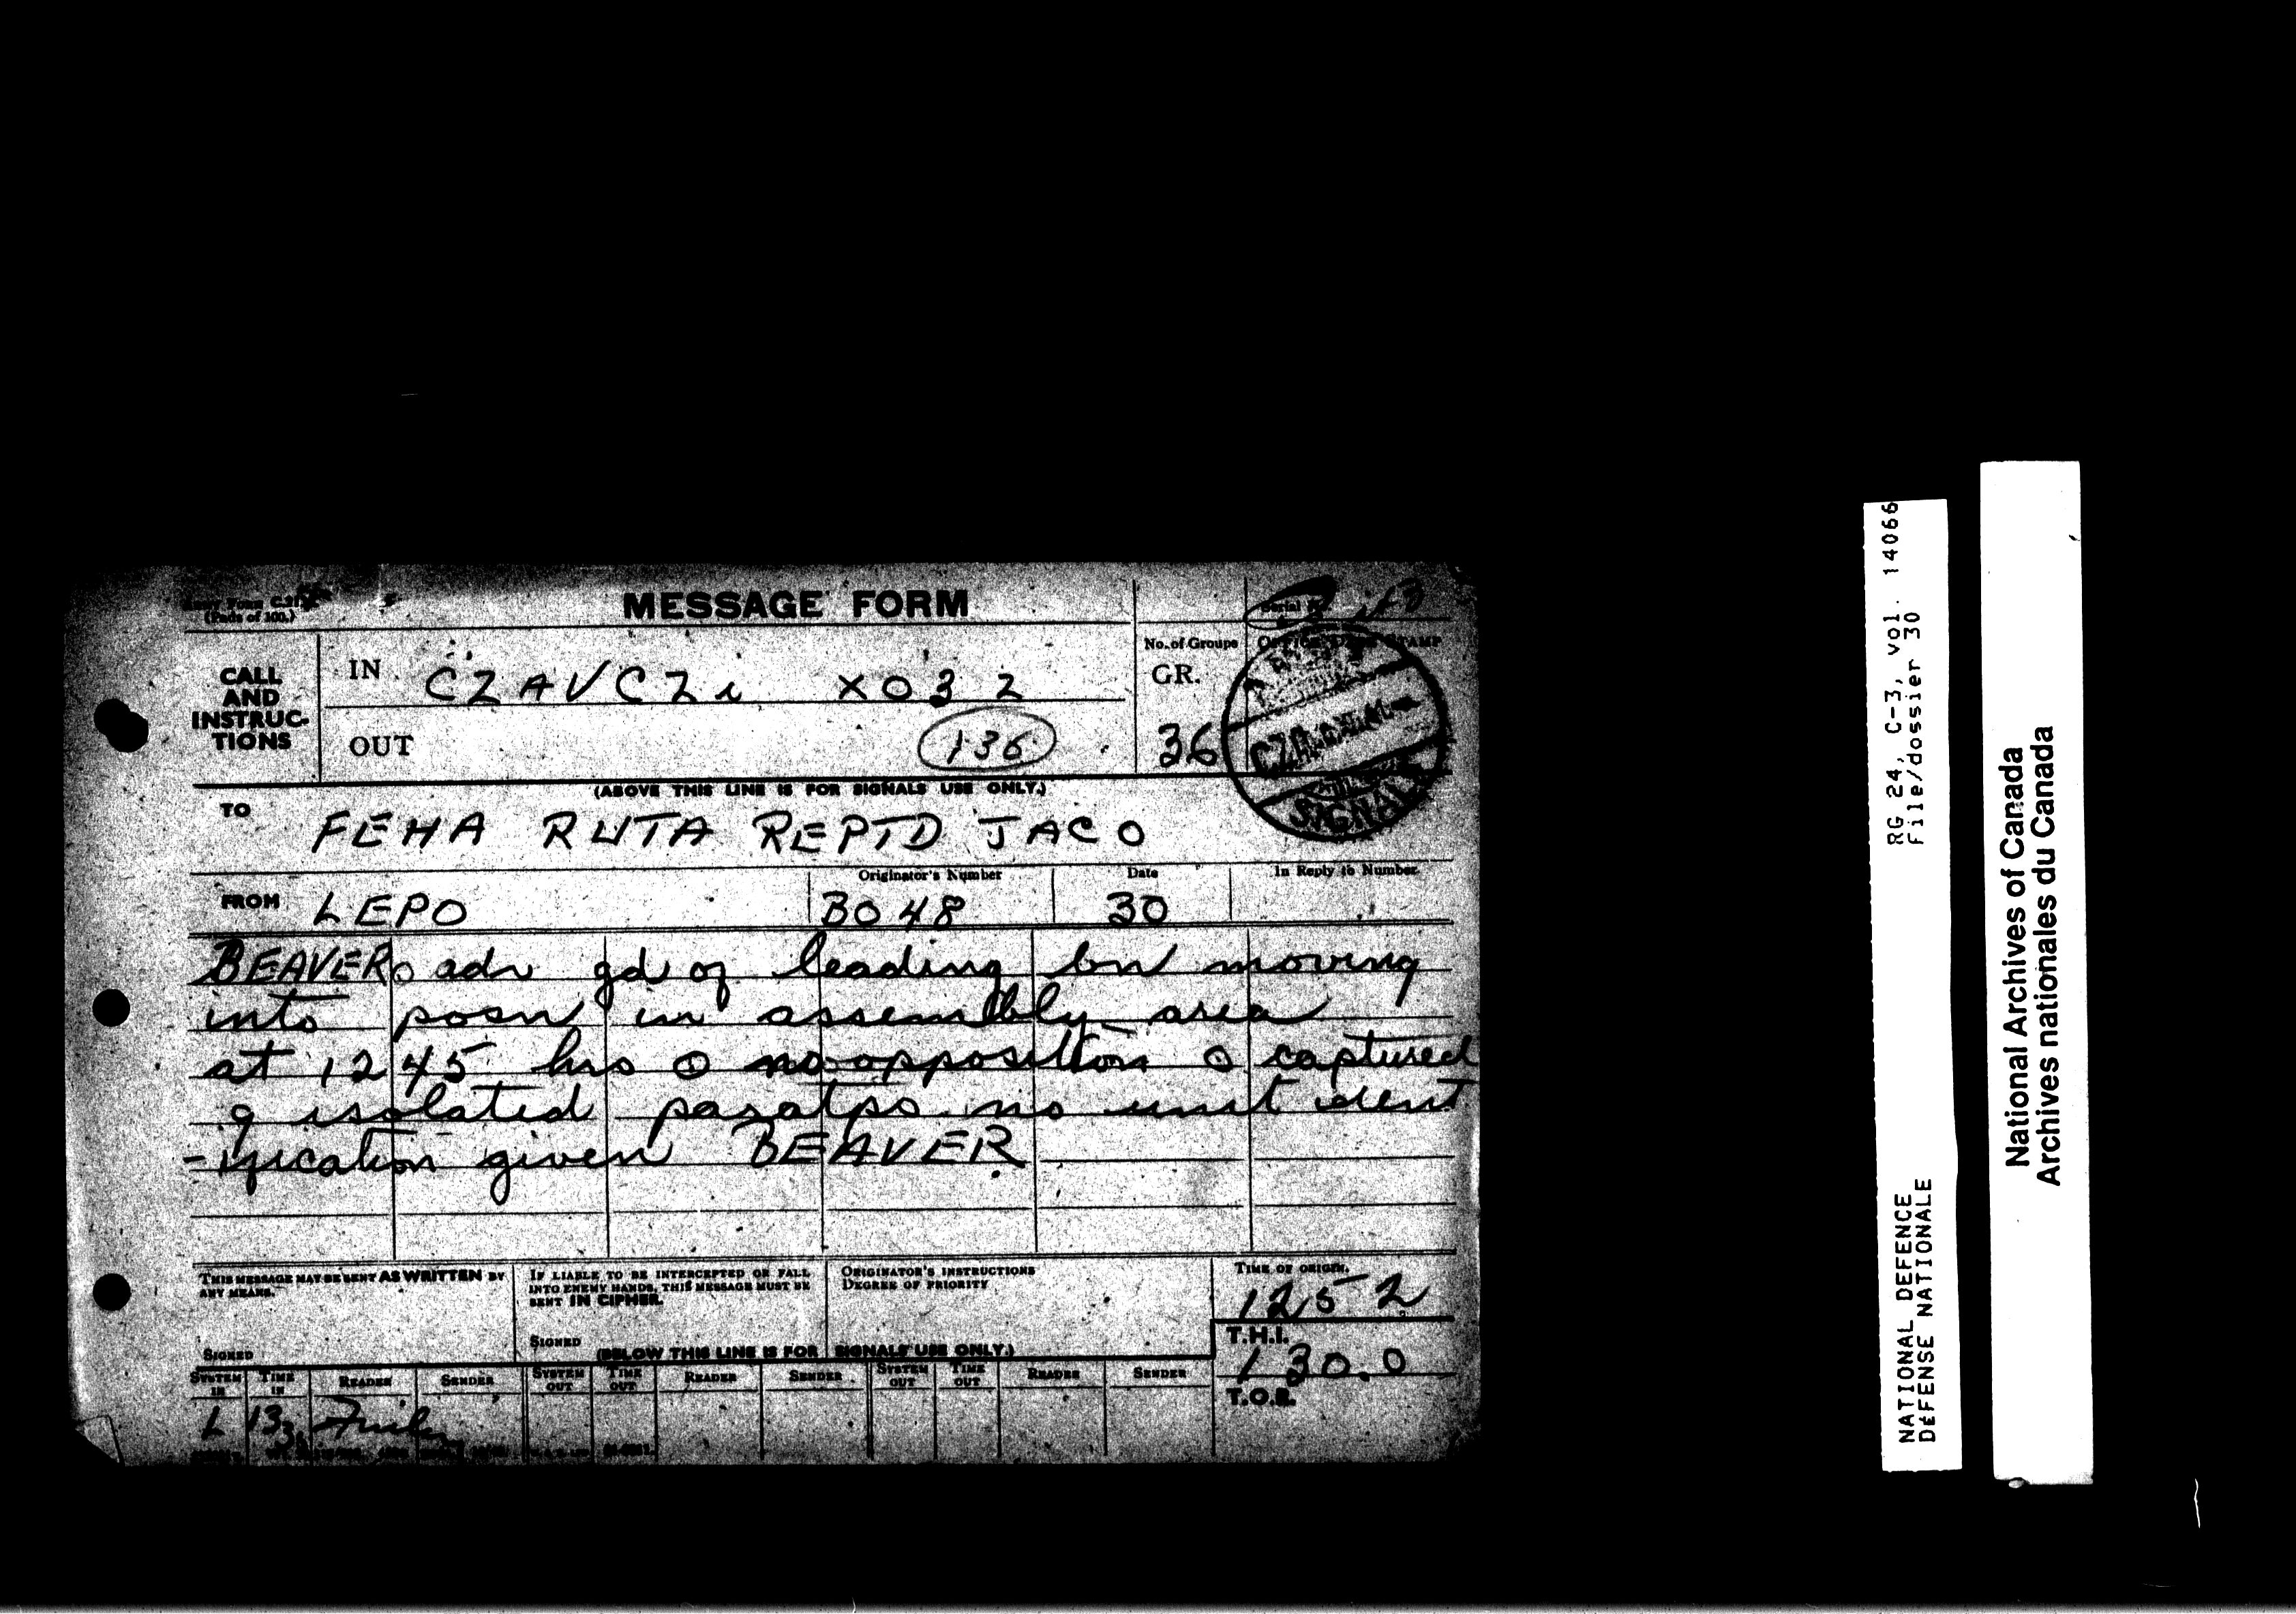 (Pads of 100.)
MESSAGE FORM
Serial
CALL AND INSTRUC-TIONS
IN CZAVCZi XO32
No. of Groups
GR.
36
OUT
136
CZA
SIGNAL
(ABOVE THIS LINE IS FOR SIGNALS USE ONLY.)
TO FEHA RUTA REPTD JACO
FROM LEPO
Originator's Number
BO48
Date
30
In Reply to Number
BEAVER o adv gd of leading bn moving
into posn in assembly area
at 1245 hrs o no opposition o captured
9 isolated paratps no unit ident
-ification given BEAVER
THIS MESSAGE MAY BE SENT AS WRITTEN BY ANY MEANS.
SIGNED
IF LIABLE TO BE INTERCEPTED OR FALL INTO ENEMY HANDS, THIS MESSAGE MUST BE SENT IN CIPHER.
SIGNED
ORIGINATOR'S INSTRUCTIONS
DEGREE OF PRIORITY
TIME OF ORIGIN.
1252
T.H.I.
130.0
T.O.R.
(BELOW THIS LINE IS FOR SIGNALS USE ONLY.)
SYSTEM IN TIME IN READER SENDER SYSTEM OUT TIME OUT READER SENDER SYSTEM OUT TIME OUT READER SENDER
L
RG 24, C-3, vol. 14066
File/dossier 30
NATIONAL DEFENCE
DÉFENSE NATIONALE
National Archives of Canada
Archives nationales du Canada